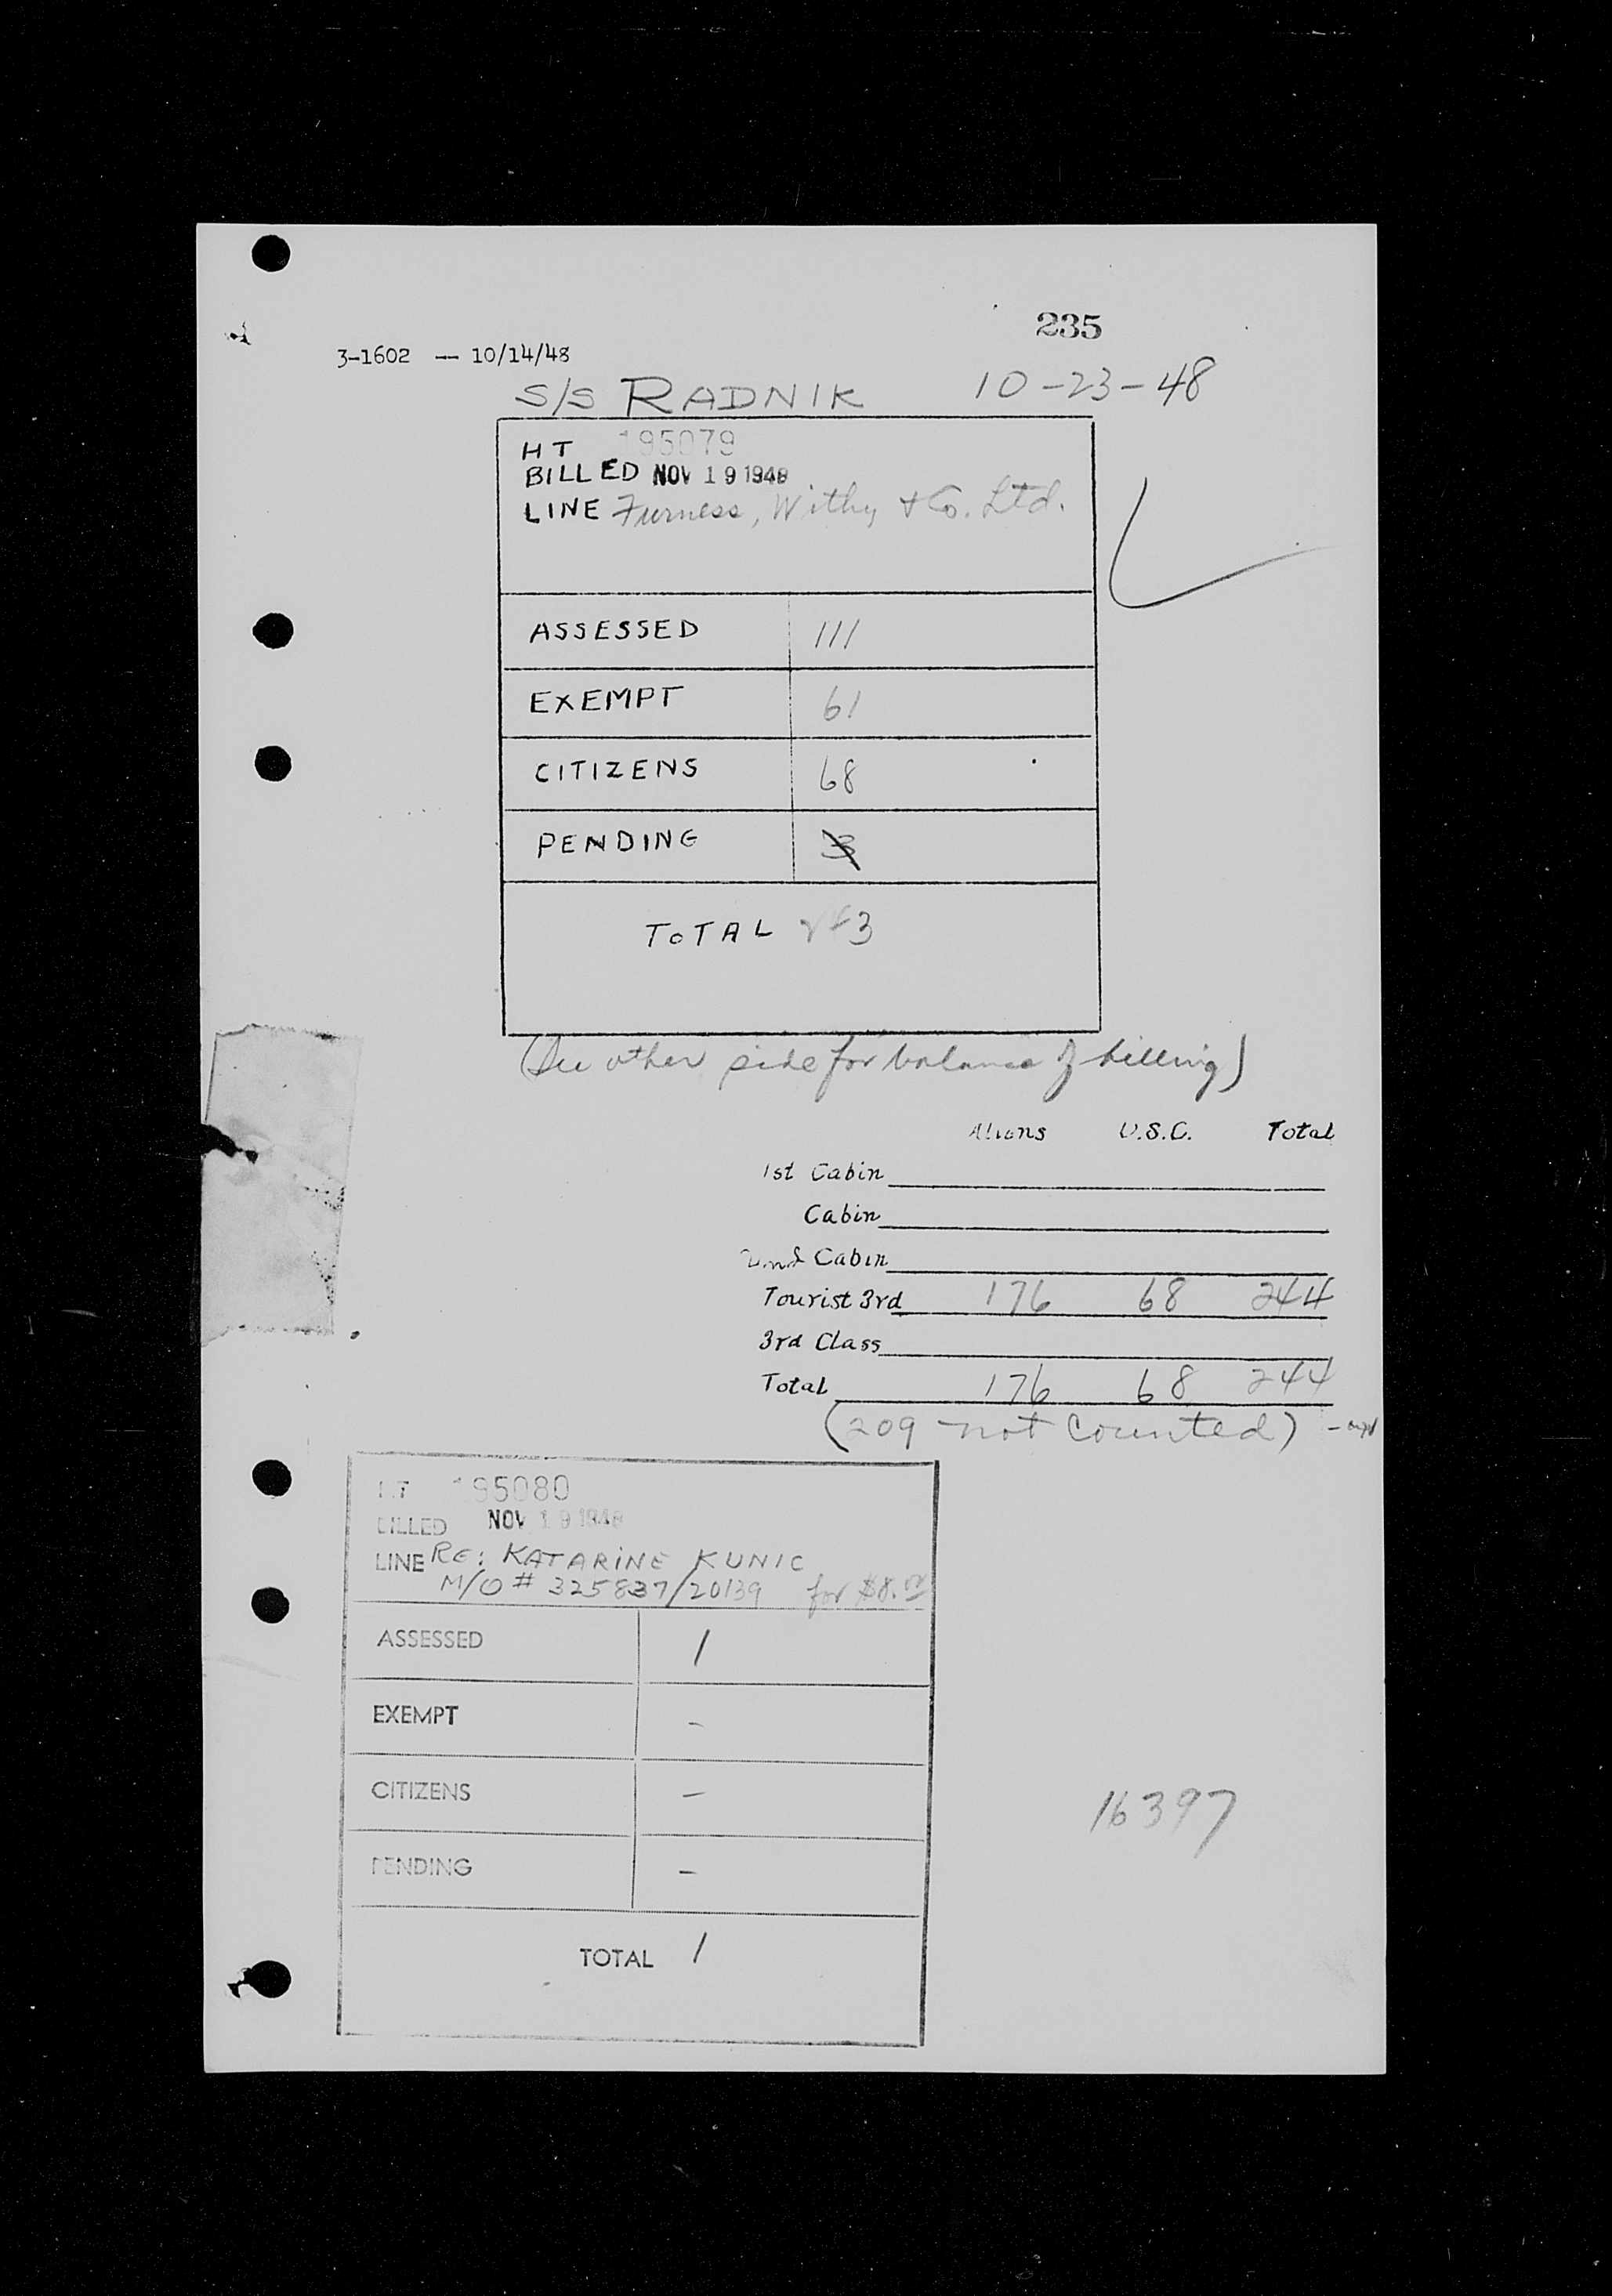 235
3-1602 -- 10/14/48
S/S RADNIK 10-23-48
HT 195079
BILLED NOV 19 1948
LINE Furness, Withy & Co. Ltd.
ASSESSED 111
EXEMPT 61
CITIZENS 68
PENDING 3
TOTAL 243
(See other side for balance of billing)
Aliens U.S.C. Total
1st Cabin
Cabin
2nd Cabin
Tourist 3rd 176 68 244
3rd Class
Total 176 68 244
(209 not counted)
HT 195080
BILLED NOV 19 1948
LINE RE: KATARINE KUNIC
M/O # 325837/20139 for $8.00
ASSESSED 1
EXEMPT -
CITIZENS -
PENDING -
TOTAL 1
16397